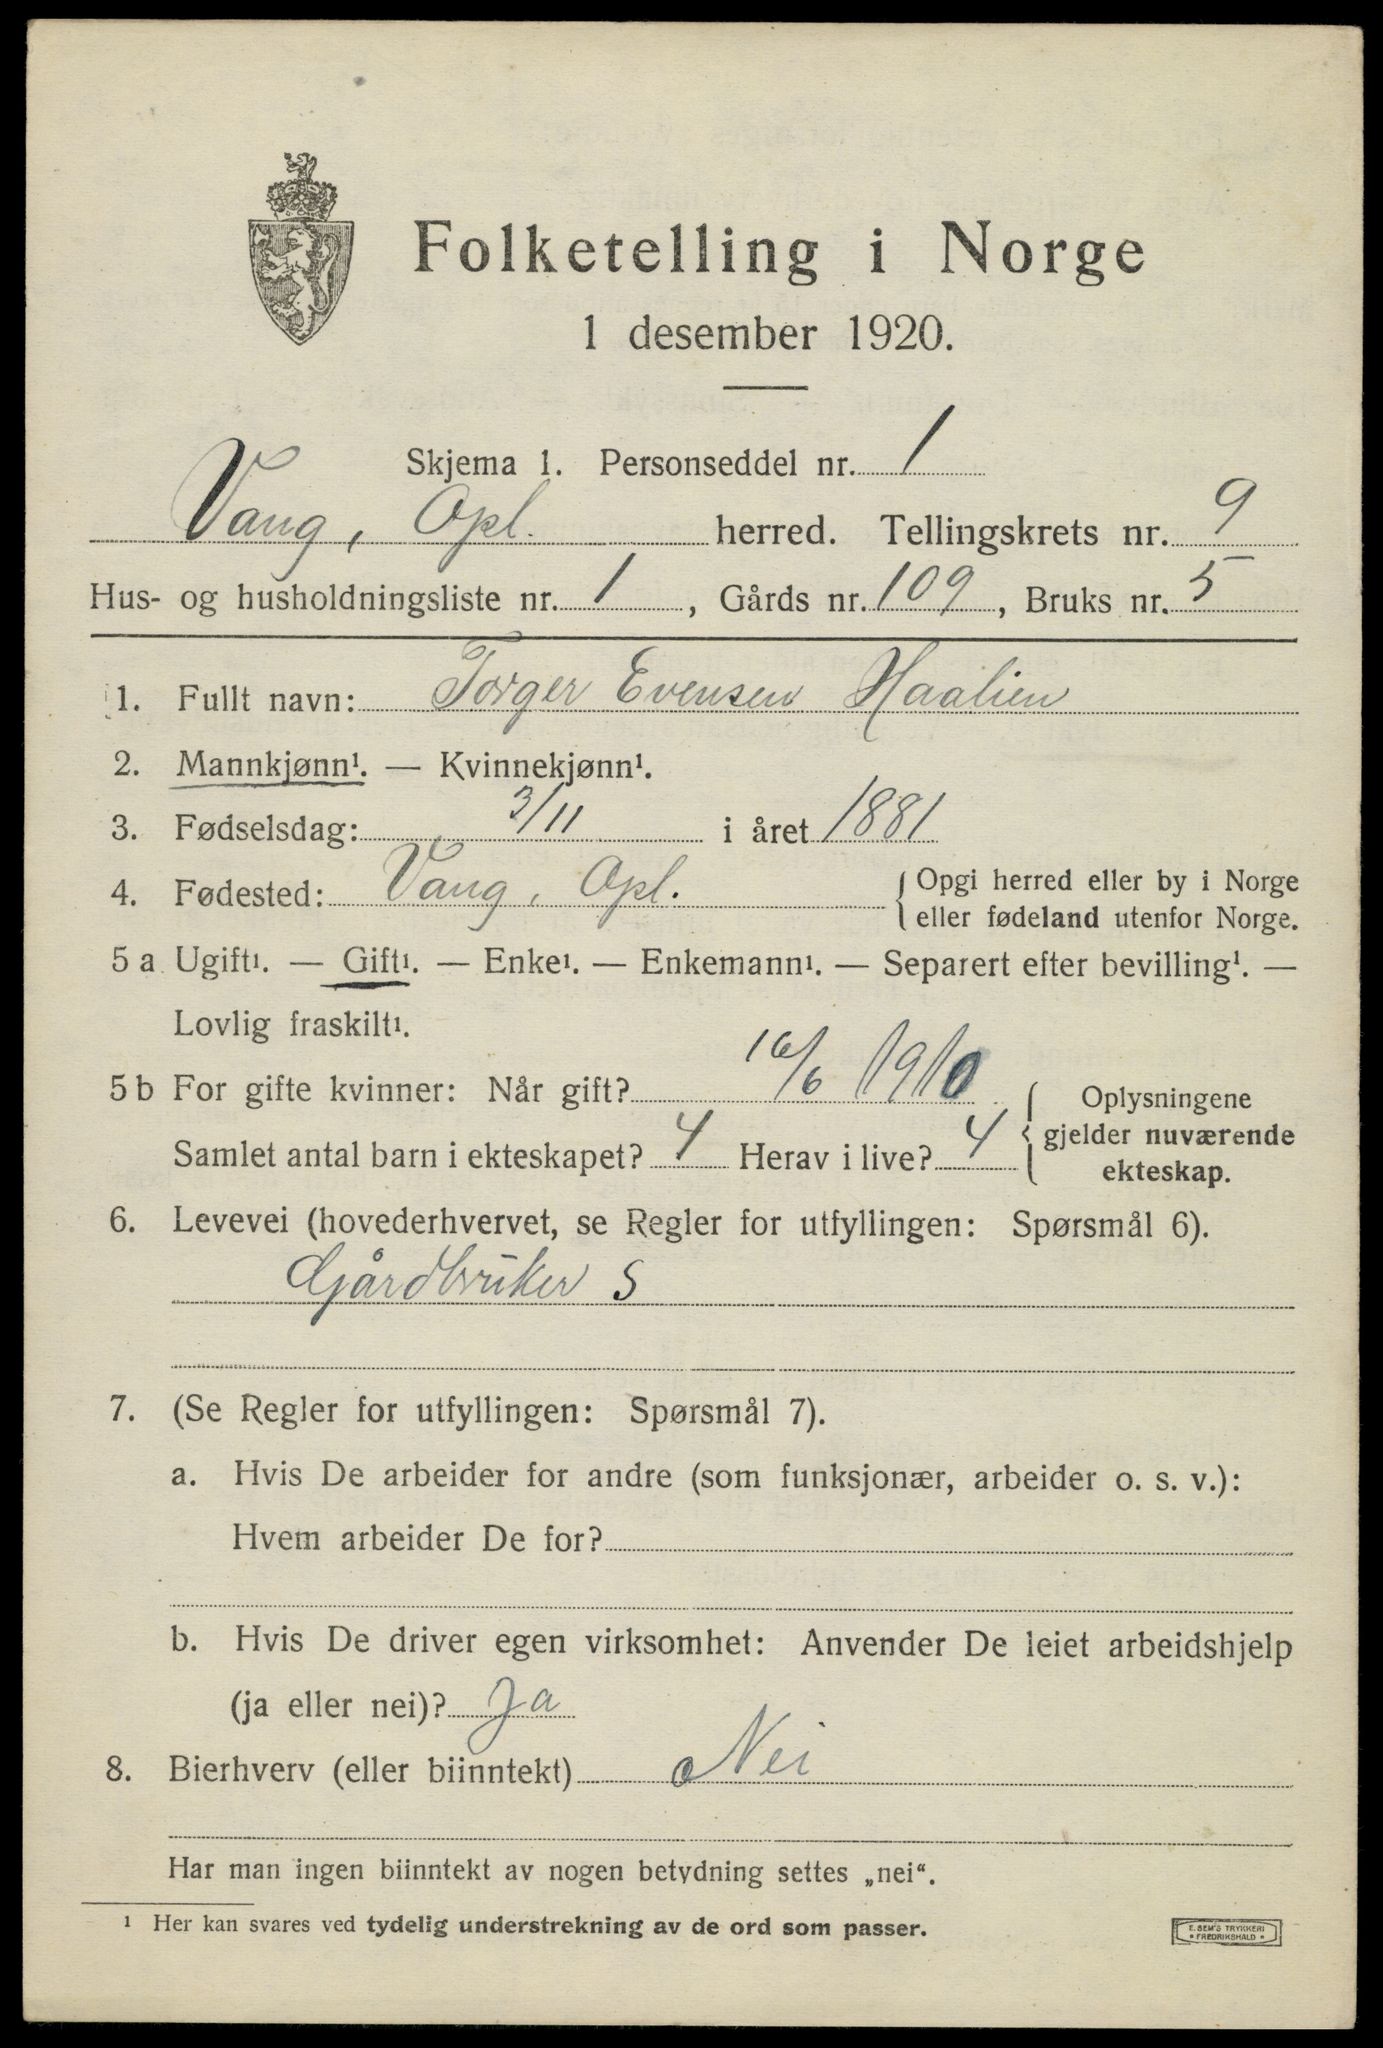 Folketelling i Norge
1 desember 1920.
Skjema 1. Personseddel nr. 1
Vang, Opl. herred. Tellingskrets nr. 9
Hus- og husholdningsliste nr. 1, Gårds nr. 109, Bruks nr. 5
1. Fullt navn: Torger Evensen Haalien
2. Mannkjønn¹. — Kvinnekjønn¹.
3. Fødselsdag: 3/11 i året 1881
4. Fødested: Vang, Opl. { Opgi herred eller by i Norge
eller fødeland utenfor Norge.
5 a Ugift¹. — Gift¹. — Enke¹. — Enkemann¹. — Separert efter bevilling¹. —
Lovlig fraskilt¹.
5 b For gifte kvinner: Når gift? 16/6 1910
Samlet antal barn i ekteskapet? 4 Herav i live? 4
{ Oplysningene
gjelder nuværende
ekteskap.
6. Levevei (hovederhvervet, se Regler for utfyllingen: Spørsmål 6).
Gårdbruker S
7. (Se Regler for utfyllingen: Spørsmål 7).
a. Hvis De arbeider for andre (som funksjonær, arbeider o. s. v.):
Hvem arbeider De for?
b. Hvis De driver egen virksomhet: Anvender De leiet arbeidshjelp
(ja eller nei)? Ja
8. Bierhverv (eller biinntekt) Nei
Har man ingen biinntekt av nogen betydning settes „nei“.
¹ Her kan svares ved tydelig understrekning av de ord som passer.
E. SEM'S TRYKKERI
• FREDRIKSHALD •